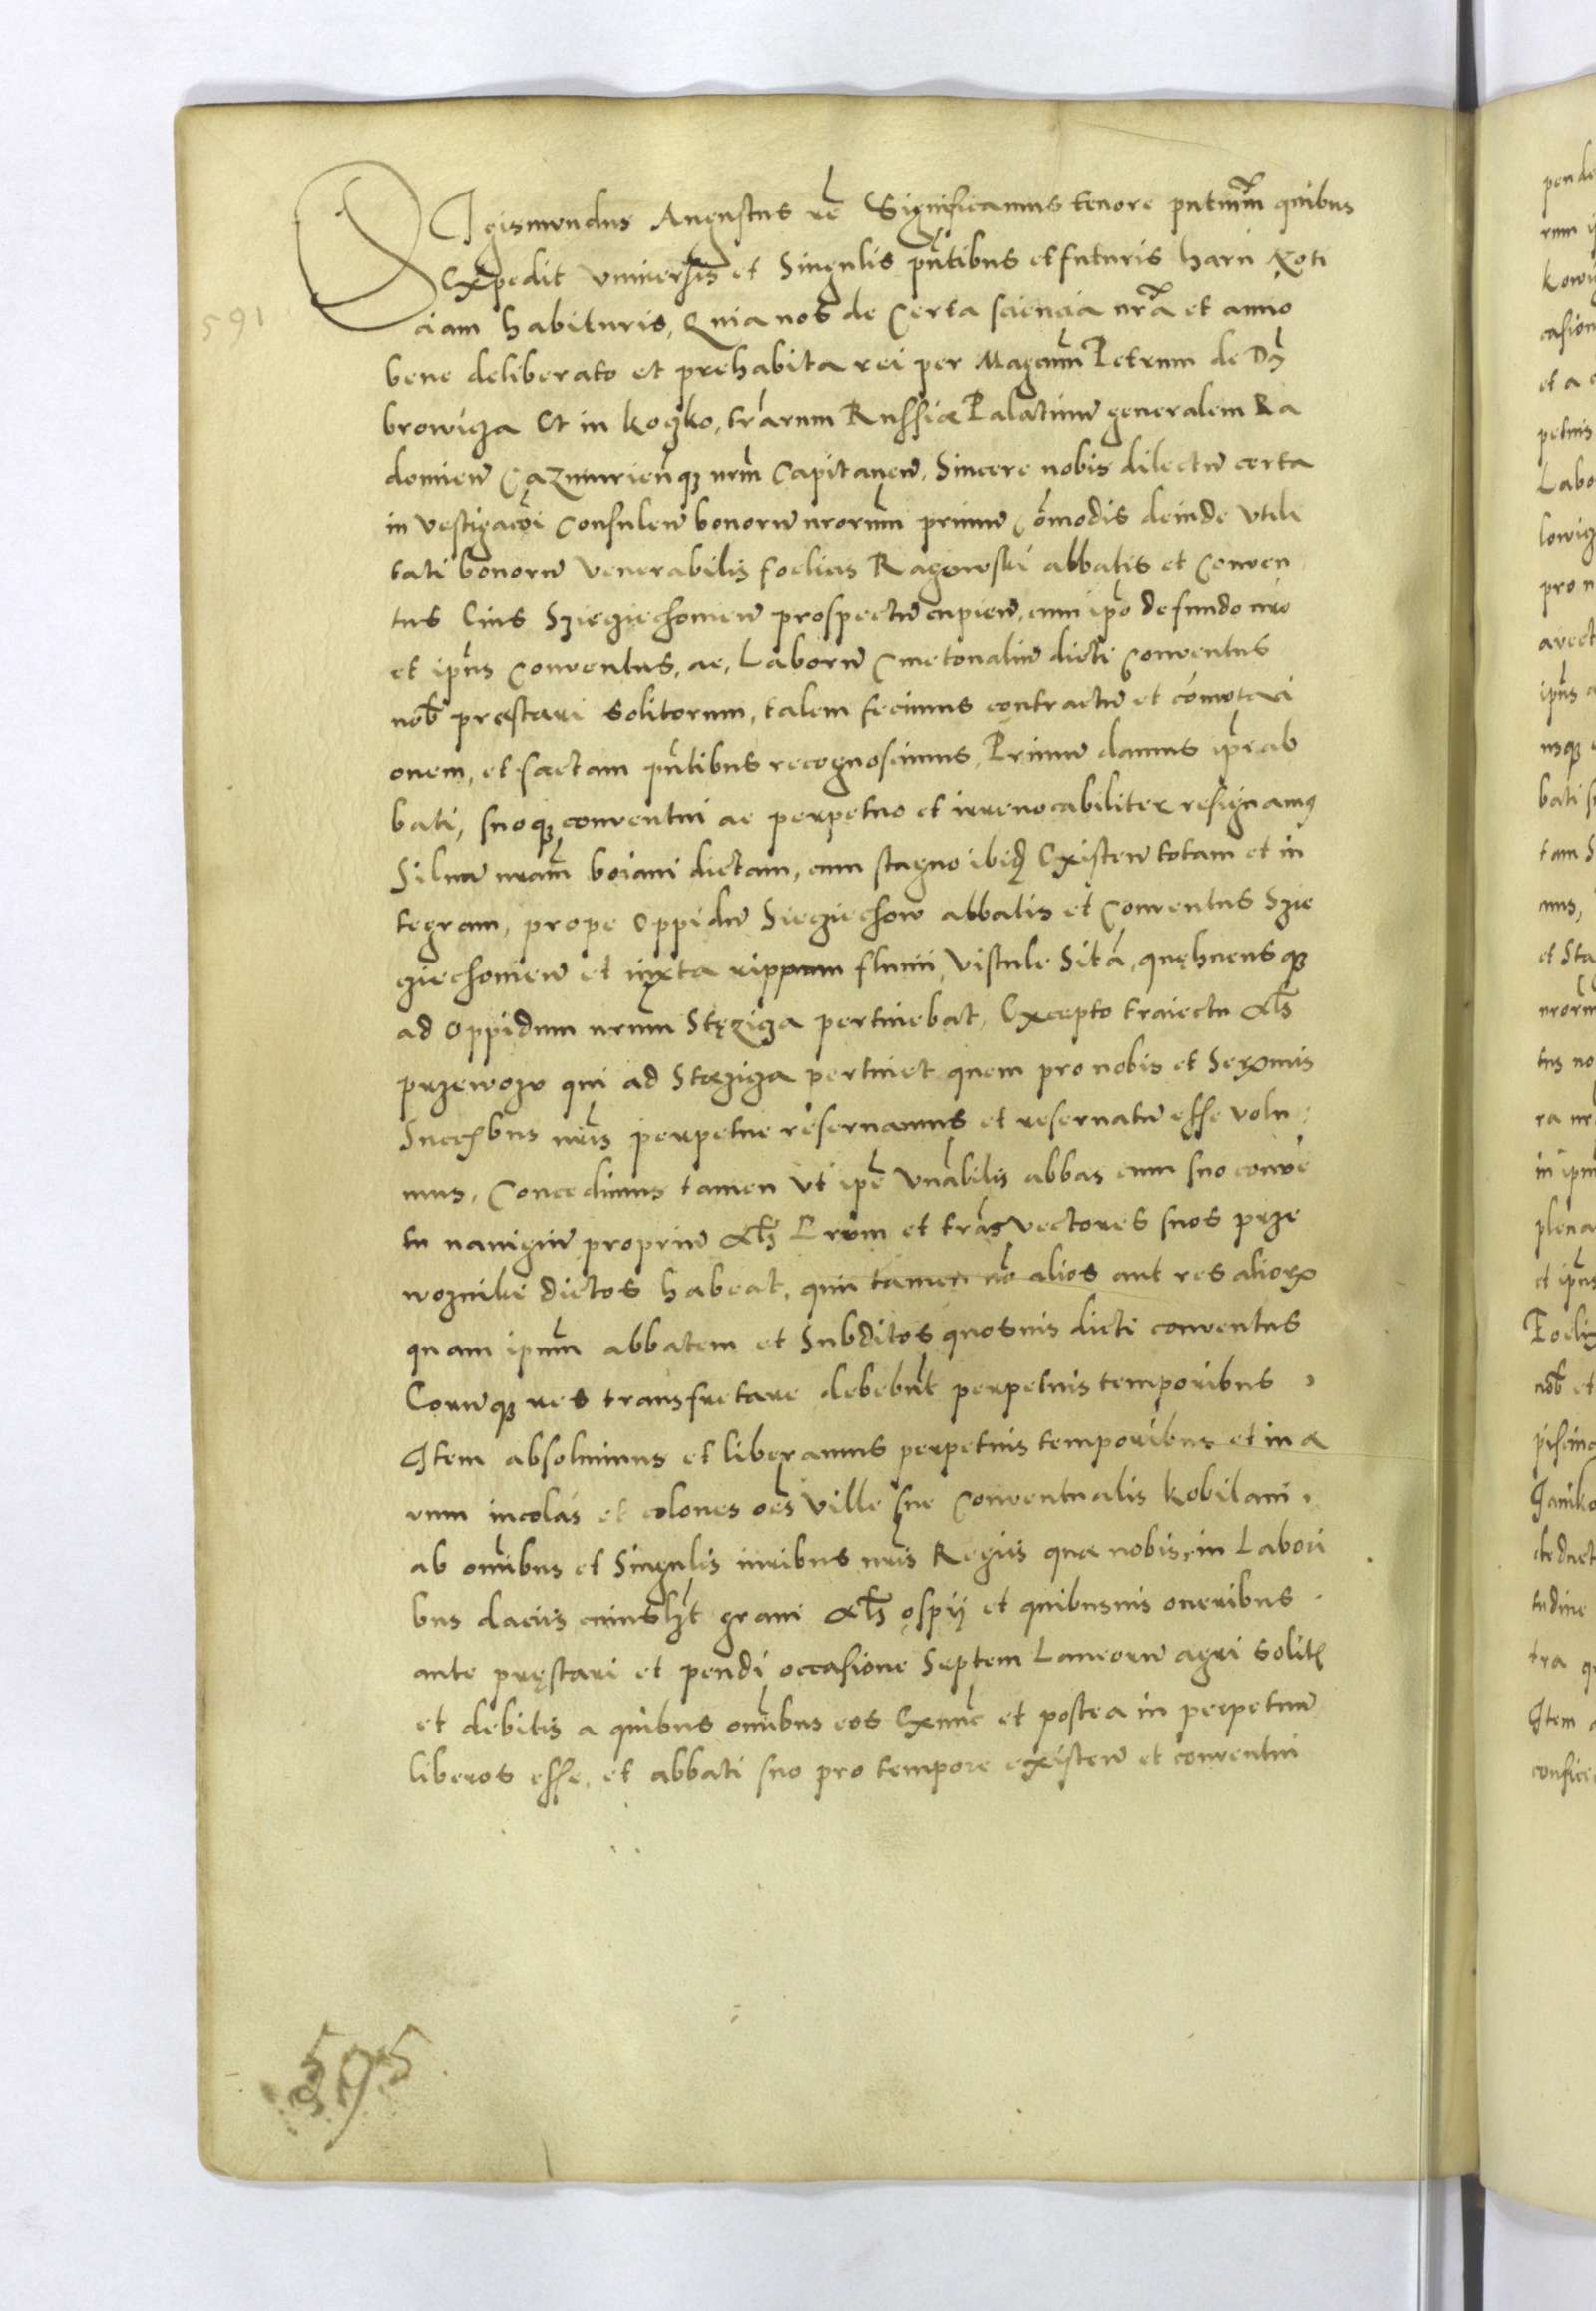 SIgismundus Augustus rē Significamus tenore pntium quibus
Expedit universis et Singulis pntibus et futuris harū Noti
591
ciam habituris, Quia nos de Certa sciencia nrā et animo
bene deliberato et prehabita rei per Magcum Petrum de Dą
browiza Et in koczko, trārum Russiæ Palatinū generalem Ra
domieñ Cazmirieñqz nrm Capitaneū, Sincere nobis dilectū certa
in vestigacōi Consuleñ bonorū nrorum primū cōmodis deinde vtili
tati bonorū Venerabilis foelicis Ragowski abbatis et Conven
tus Eius Szieziechoвieñ prospectū cupieñ, cum ipō de fundo nrō
et ipius Conventus, ac, Laborū Cmetonaliū dicti Conventus
nob præstari solitorum, talem fecimus contractū et cōmutaci
onem, et factam pntibus recognoscimus, Primū damus ipi ab
bati, suoqz conventui ac perpetuo et irrevocabiliter resignamꝰ
Silvā nram boiani dictam, cum stagno ibid Existeñ totam et in
tegram, prope Oppidū Sieziechow abbatis et Conventus Szie
ziechovieñ et iuxta rippam fluvii Vistule Sitā, quę hucusqz
ad Oppidum nrum Stęziza pertinebat, Excepto traiectu als
przewozv qui ad Stæziza pertinet quem pro nobis et Serꝫmis
Succbus nris perpetue reservamus et reservatū esse volu
mus, Concedimus tamen vt ipe Vnabilis abbas cum suo convē
tu navigiū propriū als Prom et trāsvectores suos prze
wozniki dictos habeat, qui tamen nō alios aut res aliorꝝ
quam ipum abbatem et Subditos quosvis dicti conventus
Eorūqz res transfretare debebūt perpetuis temporibus
Item absolvimus et liberamus perpetuis temporibus et in æ
vum incolas et colones oēs Ville sue Conventualis kobilani
ab omibus et Singulis iuribus nris Regiis quæ nobis, in Labori
bus daciis cuiusl3t grani als ospij et quibusvis oneribus
ante pręstari et pendi occasione Septem Laneorū agri solit
et debitis a quibus omibus eos Exnūc et postea in perpetuū
liberos esse, et abbati suo pro tempore existeñ et conventui
595